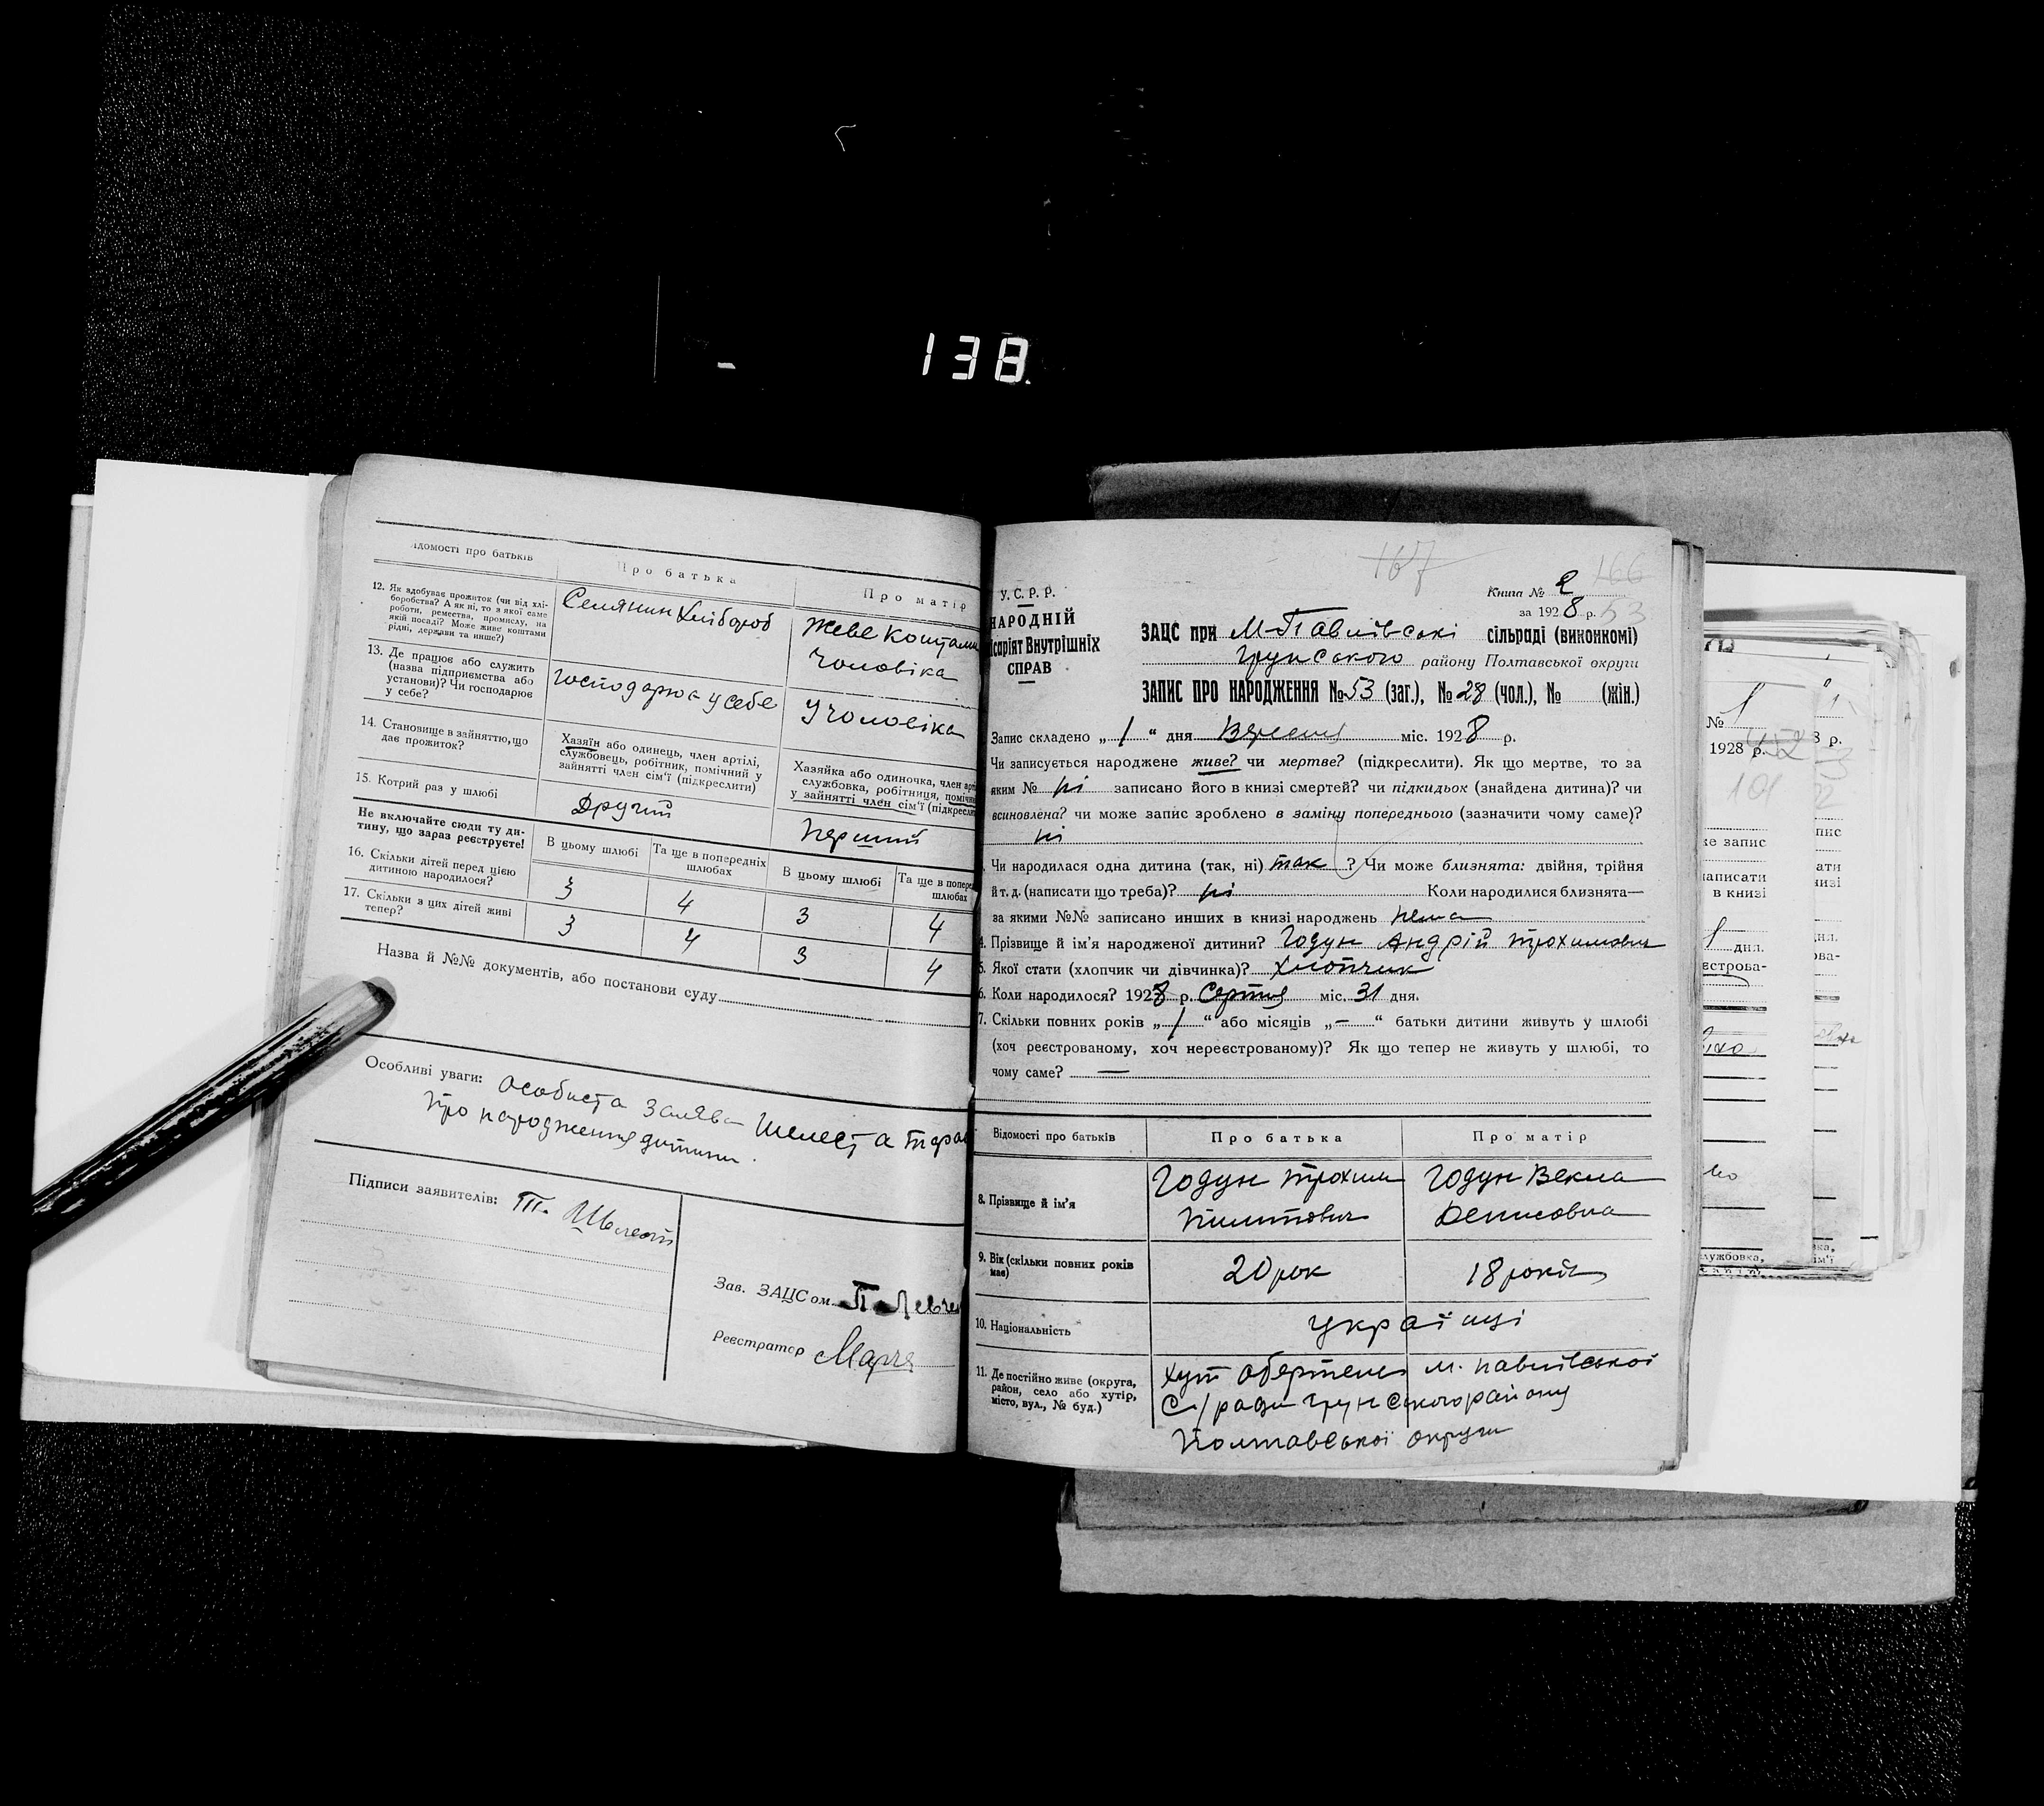 138.
Відомості про батьків
Про батька
Про матір
12. Як здобуває прожиток (чи від хлі-
боробства? А як ні, то з якої саме
роботи, ремества, промислу, на
якій посаді? Може живе коштами
рідні, держави та инше?)
Селянин Хлібороб
Живе Коштами
Чоловіка
13. Де працює або служить
(назва підприємства або
установи)? Чи господарює
у себе?
Господарює у себе
У Чоловіка
14. Становище в зайняттю, що
дає прожиток?
Хазяїн або одинець, член артілі,
службовець, робітник, помічний у
зайнятті член сім'ї (підкреслити)
Хазяйка або одиночка, член арті
службовка, робітниця, помічн
у зайнятті член сім'ї (підкресли
15. Котрий раз у шлюбі
Другий
Перший
Не включайте сюди ту ди-
тину, що зараз реєструєте!
В цьому шлюбі
Та ще в попередніх
шлюбах
В цьому шлюбі
Та ще в попере
шлюбах
16. Скільки дітей перед цією
дитиною народилося?
3 4 3 4
17. Скільки з цих дітей живі
тепер?
3 4 3 4
Назва й №№ документів, або постанови суду
Особливі уваги: Особиста Заява Шелеста Тара
про народження дитини.
Підписи заявителів: Т. Шелест
Зав. ЗАЦСом П Левче
Реєстратор
167
166
У.С.Р.Р.
НАРОДНІЙ
ісаріят Внутрішніх
СПРАВ
Книга № 2
за 1928 р. 53
ЗАЦС при М-Павлівські сільраді (виконкомі)
Грунського району Полтавської округи
ЗАПИС ПРО НАРОДЖЕННЯ № 53 (заг.), № 28 (чол.), № (жін.)
Запис складено „ 1 “ дня Вересня міс. 1928 р.
Чи записується народжене живе? чи мертве? (підкреслити). Як що мертве, то за
яким № ні записано його в книзі смертей? чи підкидьок (знайдена дитина)? чи
всиновлена? чи може запис зроблено в заміну попереднього (зазначити чому саме)?
ні
Чи народилася одна дитина (так, ні) так ? Чи може близнята: двійня, трійня
й т. д. (написати що треба)? ні Коли народилися близнята—
за якими №№ записано инших в книзі народжень нема
4. Прізвище й ім'я народженої дитини? Годун Андрій Трохимович
5. Якої стати (хлопчик чи дівчинка)? Хлопчик
6. Коли народилося? 1928 р. Серпня міс. 31 дня.
7. Скільки повних років „ 1 “ або місяців „ — “ батьки дитини живуть у шлюбі
(хоч реєстрованому, хоч нереєстрованому)? Як що тепер не живуть у шлюбі, то
чому саме? —
Відомості про батьків
Про батька
Про матір
8. Прізвище й ім'я
Годун Трохим
Пилипович
Годун Векла
Денисовна
9. Вік (скільки повних років
має)
20 рок
18 років
10. Національність
Українці
11. Де постійно живе (округа,
район, село або хутір,
місто, вул., № буд.)
Хут м. павлівської
С/ради Грунського району
Полтавської округи
№ 1
1928 р.
8 р.
101
же запис
написати
в книзі
дня.
єстрова-
службовка,